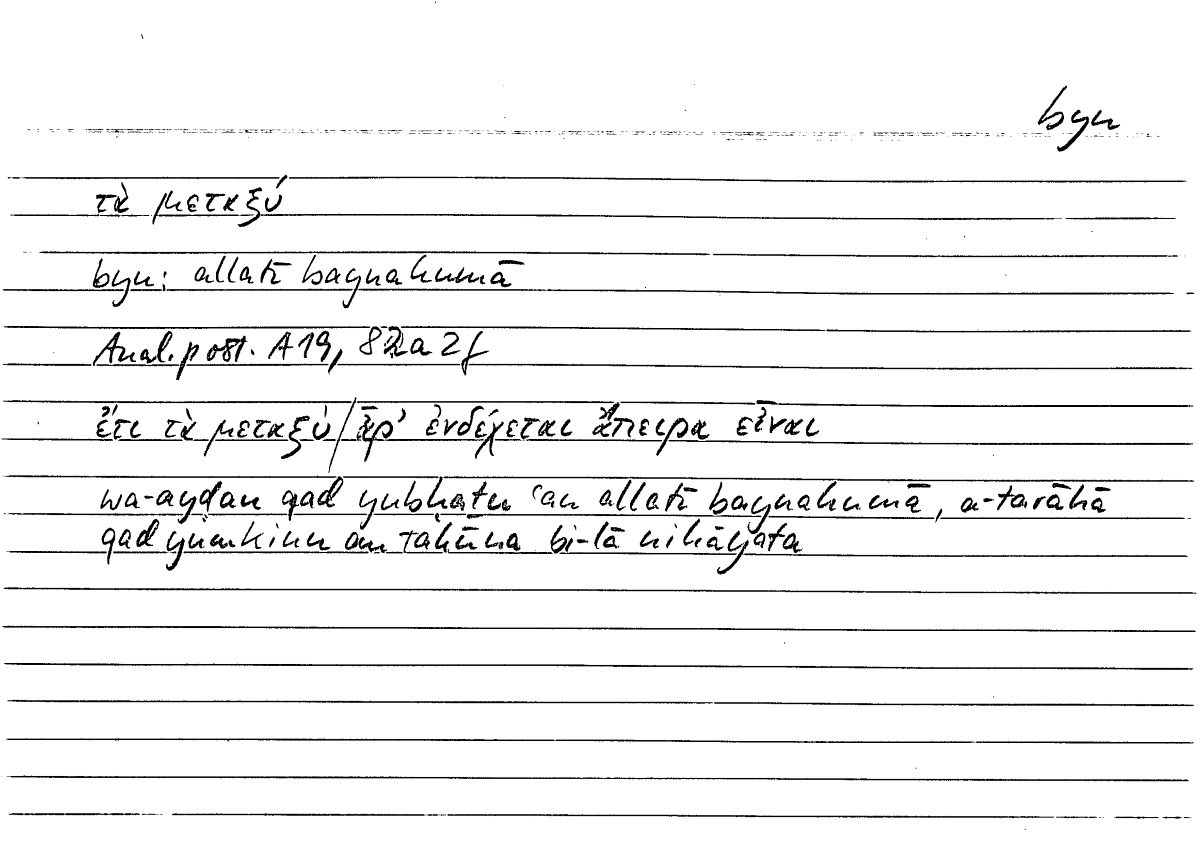 byn
τὰ μεταξύ
byn: allatī baynahumā
Anal. post. A19, 82a2f
ἔτι τὰ μεταξύ/ἆρ' ἐνδέχεται ἄπειρα εἶναι
wa-ayḍan qad yubḥaṯu ʿan allatī baynahumā, a-tarāhā
qad yumkinu an takūna bi-lā nihāyata